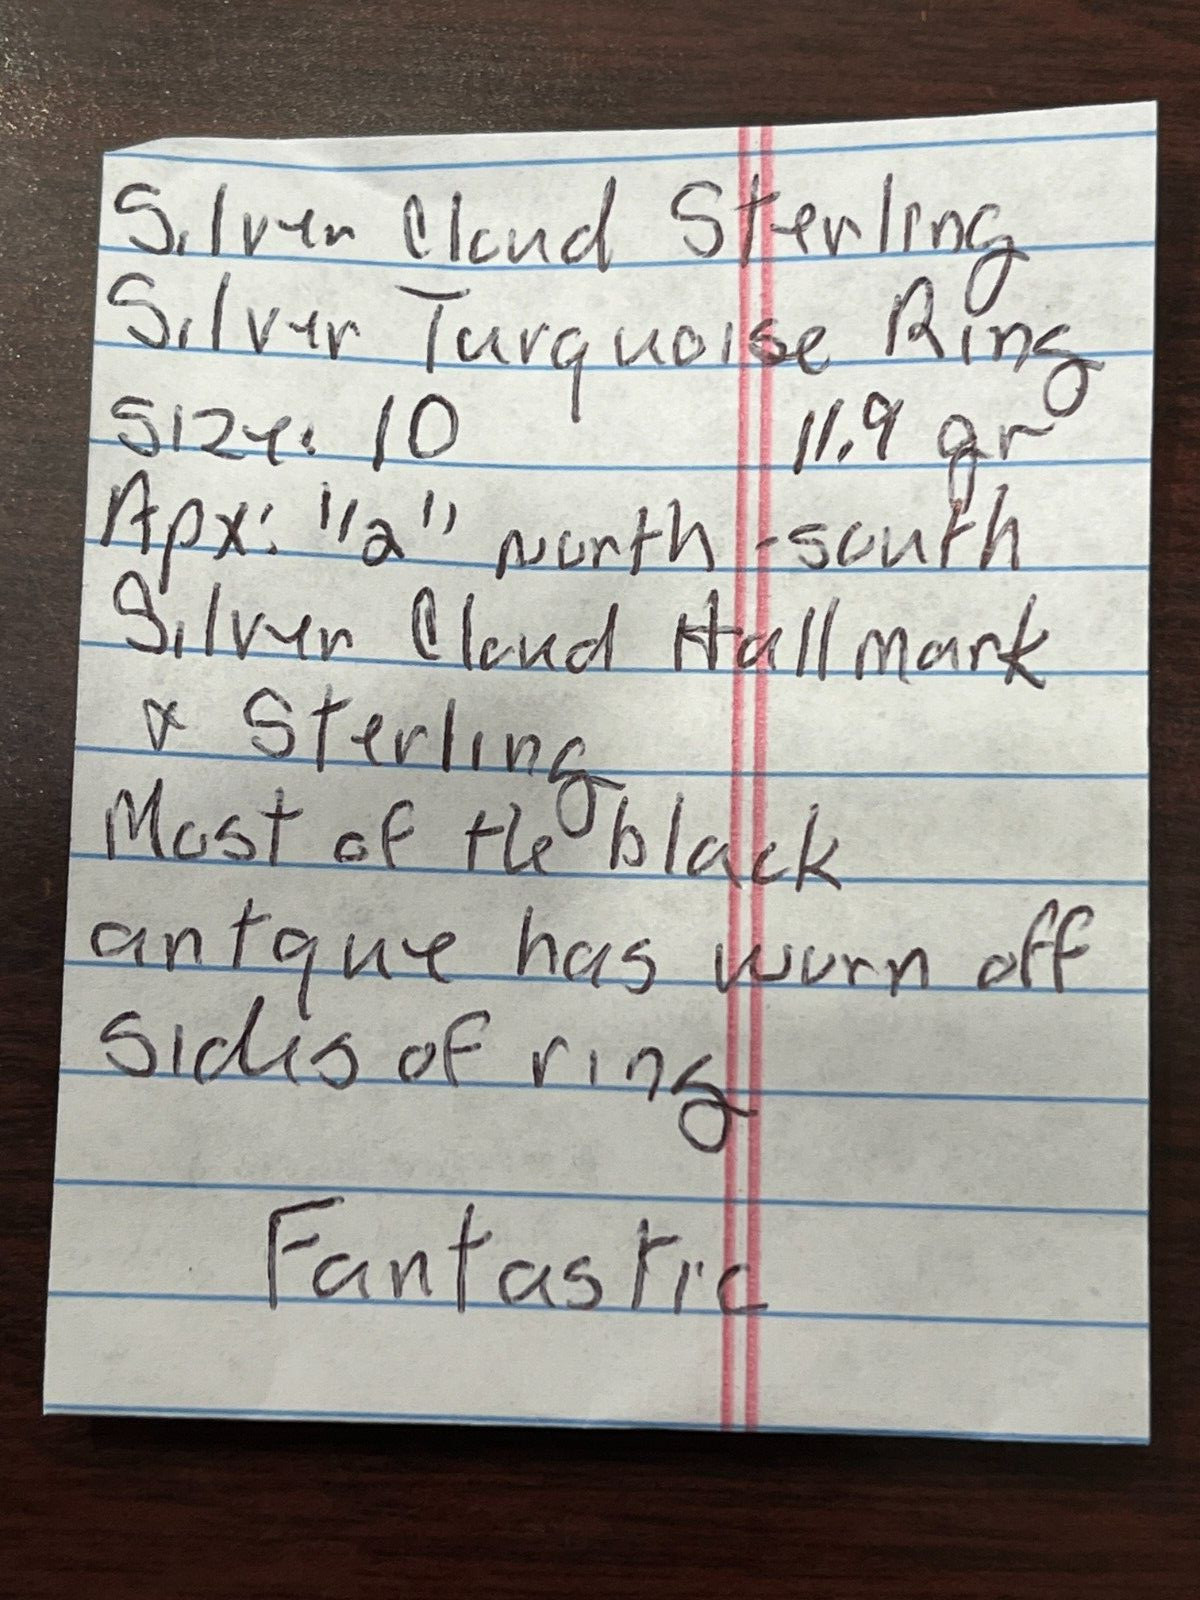 Silver Cloud Sterling
Silver Turquoise Ring
Size: 10 11.9 gr
Apx: 1/2" north-south
Silver Cloud Hallmark
& Sterling
Most of the black
antque has worn off
sides of ring
Fantastic